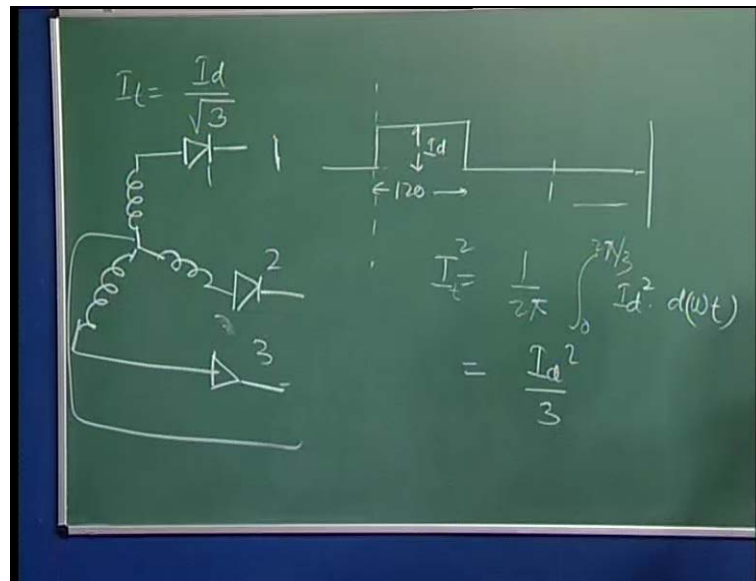 It = Id/√3
1
Id
120
2
3
It² = 1/2π ∫₀^2π/3 Id² · d(ωt)
= Id²/3